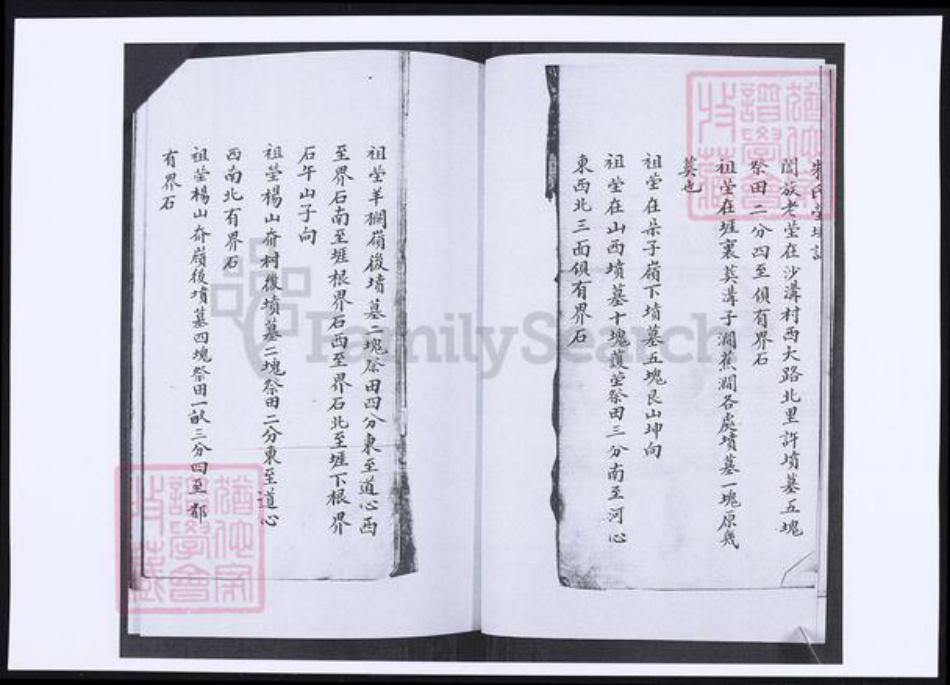 朱氏塋地記
闔族老塋在沙溝村西大路北里許墳墓五塊
祭田二分四至俱有界石
祖塋在堐裏葖溝子澗蕉澗各處墳墓一塊原幾
葖也
祖塋在朵子嶺下墳墓五塊艮山坤向
祖塋在山西墳墓十塊護塋祭田三分南至河心
東西北三面俱有界石
祖塋羊欄嶺後墳墓二塊祭田四分東至道心西
至界石南至堐根界石西至界石北至堐下根界
石午山子向
祖塋楊山夼村後墳墓二塊祭田二分東至道心
西南北有界石
祖塋楊山夼嶺後墳墓四塊祭田一畝三分四至都
有界石
FamilySearch
譜學會
收藏
譜學會
收藏